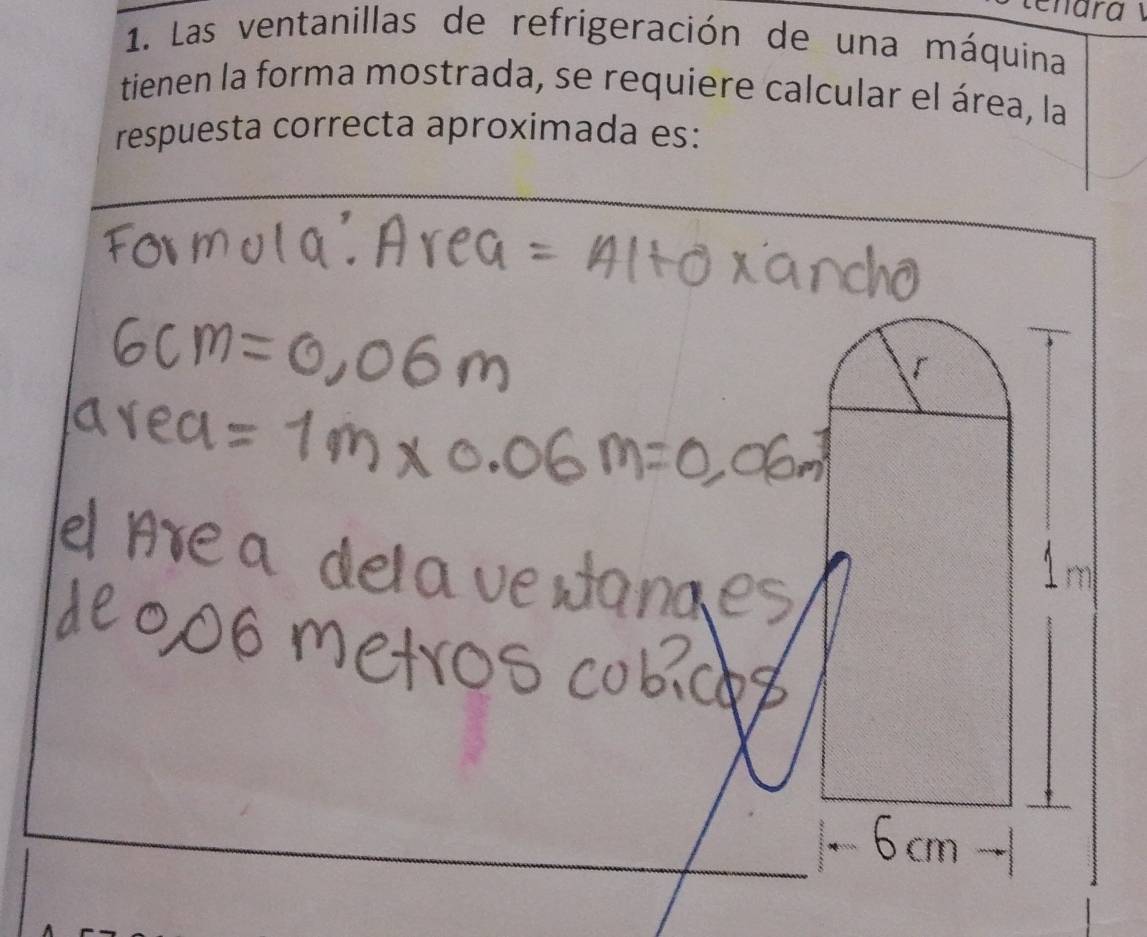 tendrá
1. Las ventanillas de refrigeración de una máquina
tienen la forma mostrada, se requiere calcular el área, la
respuesta correcta aproximada es:
Formula: Area = Alto x ancho
6cm = 0,06 m
area = 1m x 0.06 m = 0,06 m³
el Area dela ventana es
de 0,06 metros cobicos
r
1 m
6 cm